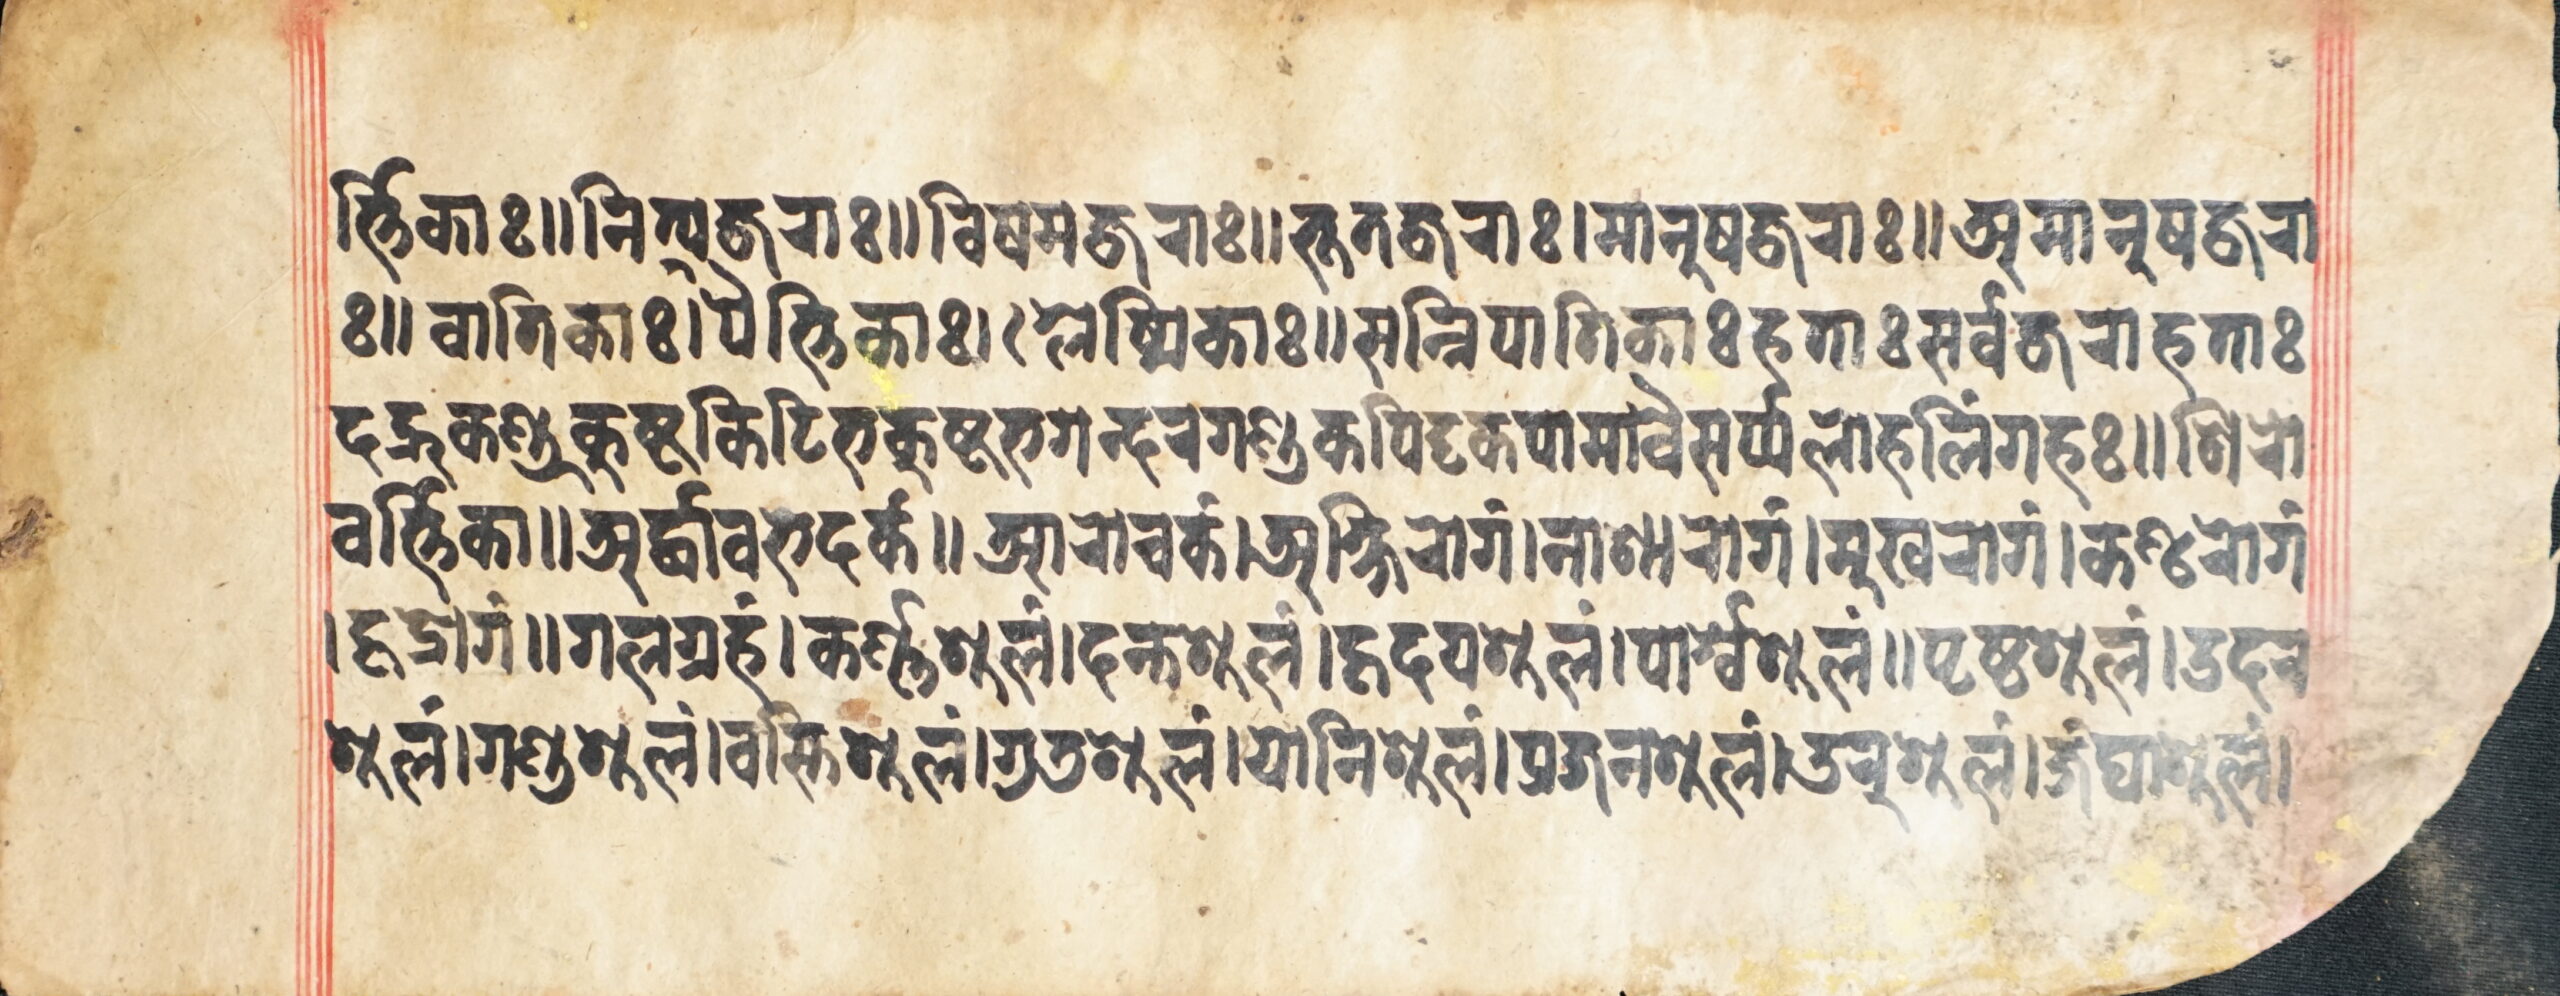 र्त्तिकाः॥नित्यज्वराः॥विषमज्वराः॥भूतज्वराः।मानुषज्वराः॥अमानुषज्वरा
ः॥वातिकाः।पैत्तिकाः।श्लेष्मिकाः॥सन्निपातिकाःहताःसर्वज्वराहताः
दद्रुकण्डुकुष्टकिटिभकुष्टभगन्दरगण्डकपिटकपामावैसर्प्पलोहलिंगहः॥शिरो
वर्त्तिका॥अर्द्धावभदकं॥आरोचकं।अक्षिरोगं।नाशारोगं।मुखरोगं।कण्ठरोगं
।हृद्रोगं॥गलग्रहं।कर्ण्णशुलं।दन्तशुलं।हृदयशुलं।पार्श्वशुलं॥पृष्ठशुलं।उदर
शुलं।गण्डशुलं।वस्तिशुलं।गुडशुलं।योनिशुलं।प्रजनशुलं।उरुशुलं।जंघाशुलं।